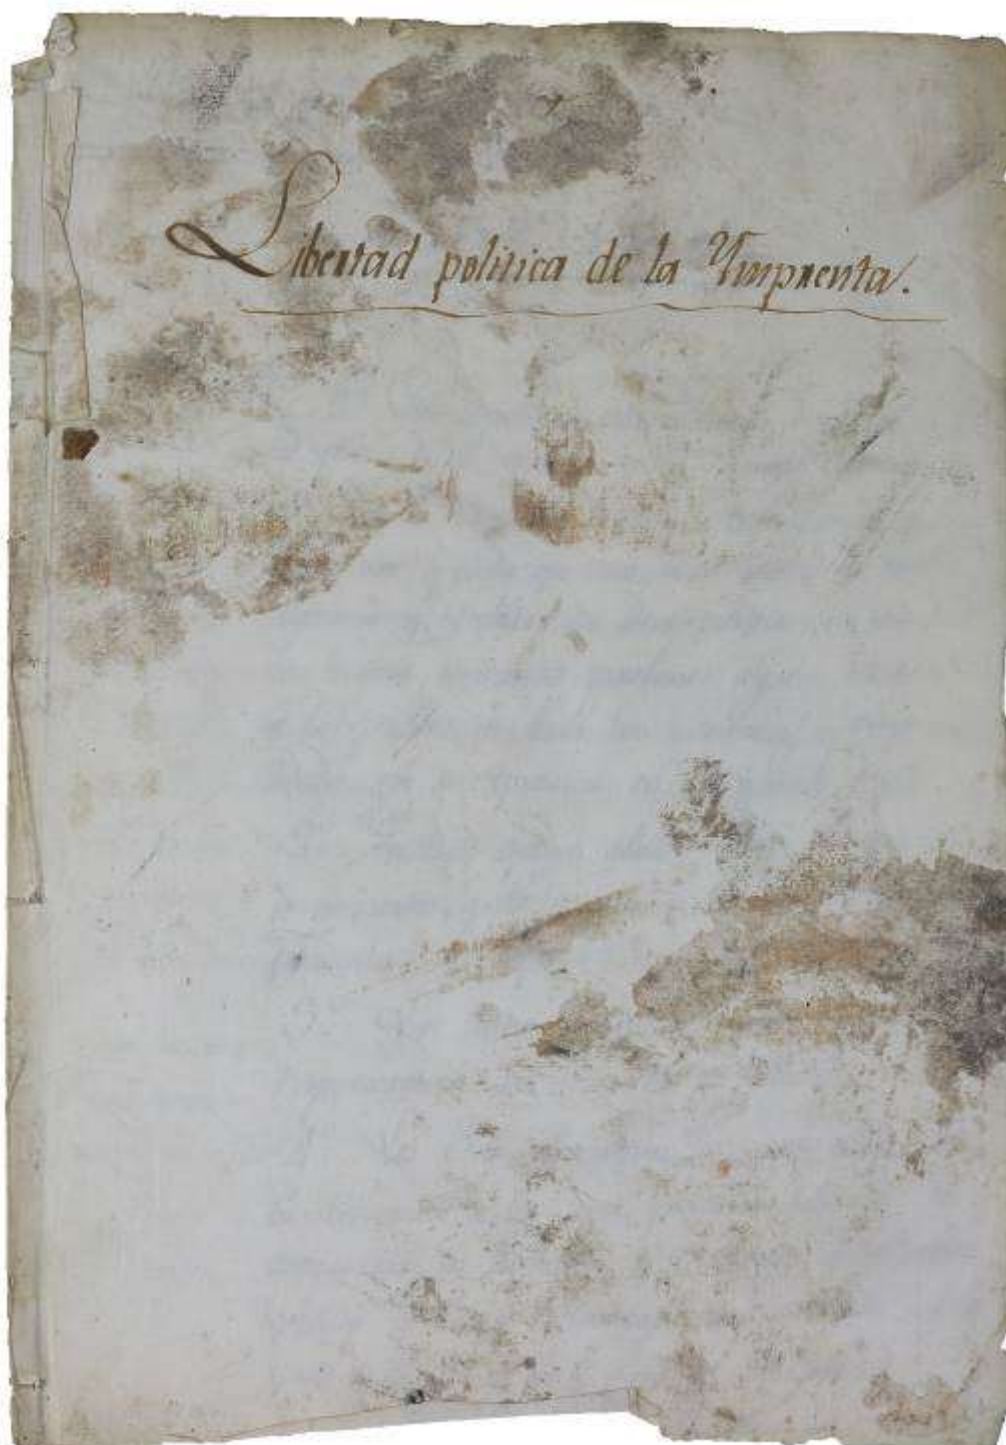 Libertad politica de la Ymprenta.